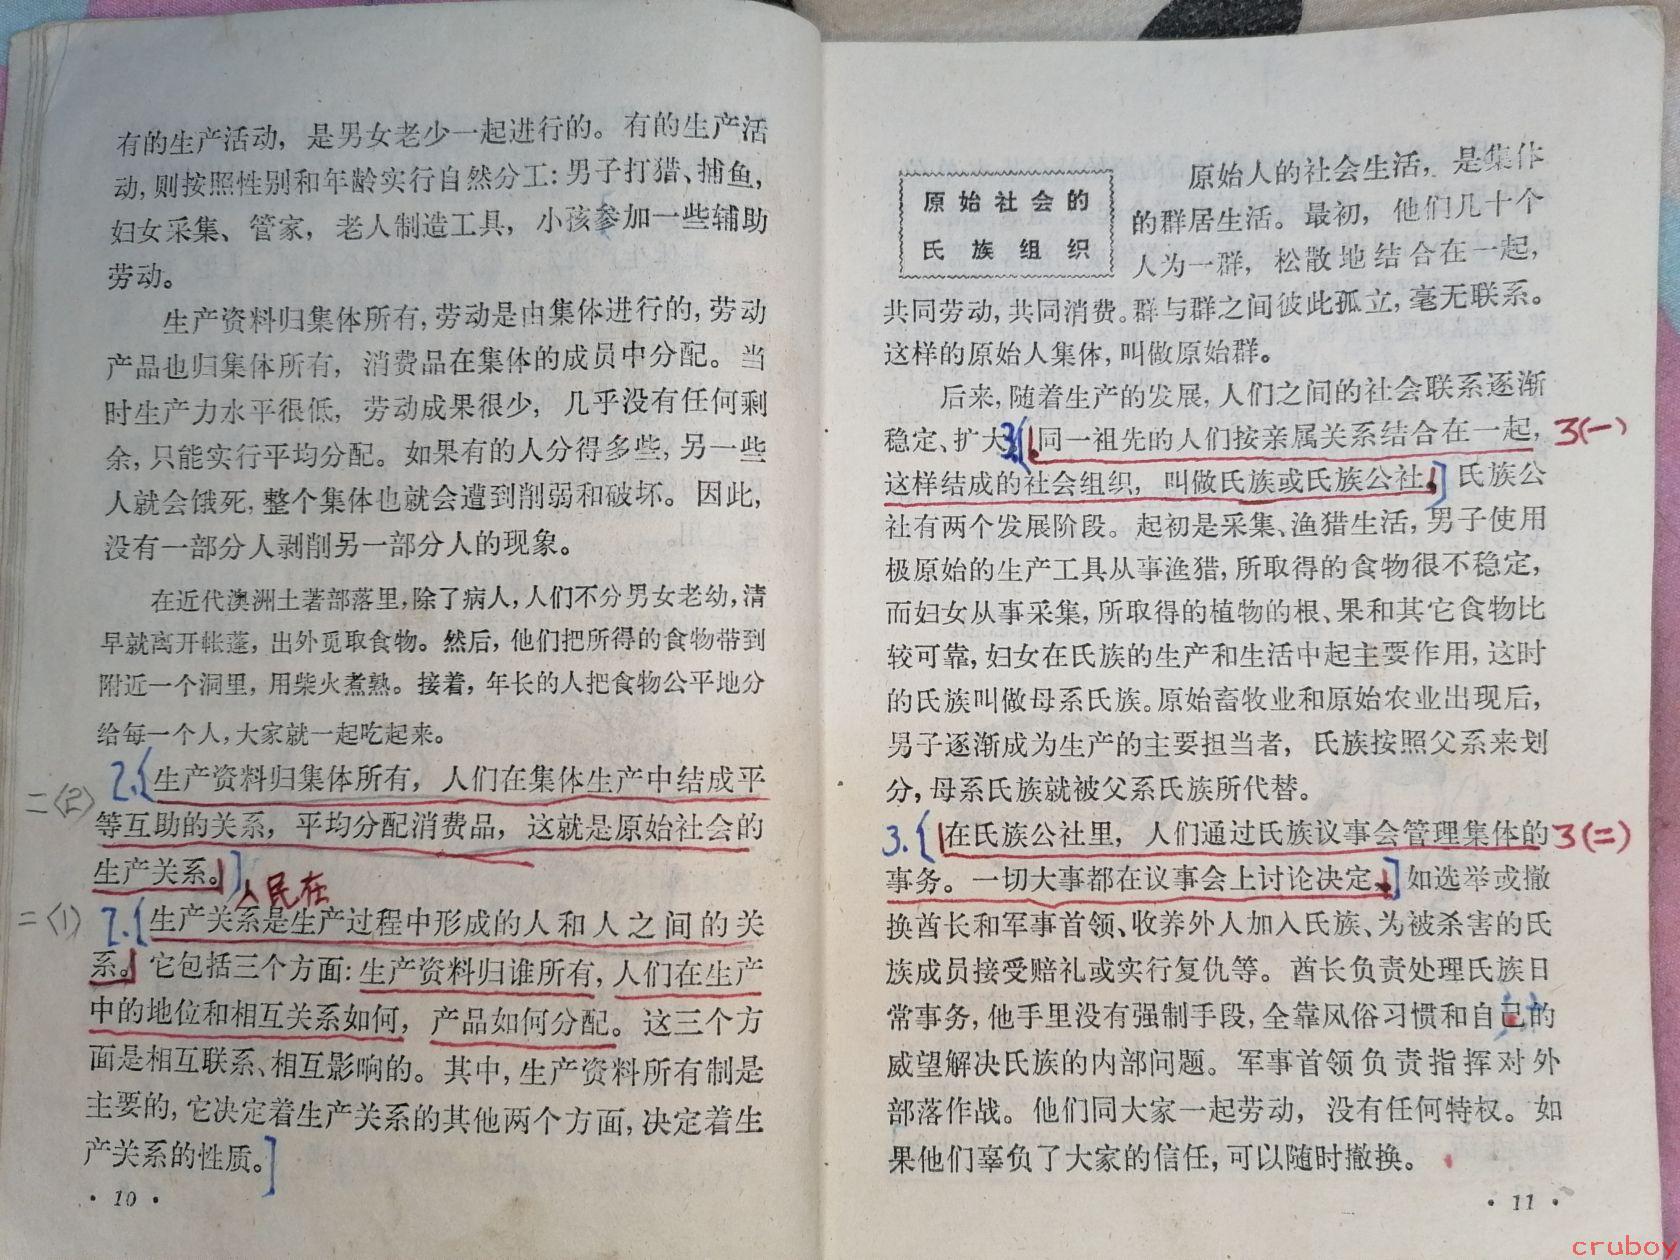 有的生产活动，是男女老少一起进行的。有的生产活
动，则按照性别和年龄实行自然分工：男子打猎、捕鱼，
妇女采集、管家，老人制造工具，小孩参加一些辅助
劳动。
生产资料归集体所有，劳动是由集体进行的，劳动
产品也归集体所有，消费品在集体的成员中分配。当
时生产力水平很低，劳动成果很少，几乎没有任何剩
余，只能实行平均分配。如果有的人分得多些，另一些
人就会饿死，整个集体也就会遭到削弱和破坏。因此，
没有一部分人剥削另一部分人的现象。
在近代澳洲土著部落里，除了病人，人们不分男女老幼，清
早就离开帐蓬，出外觅取食物。然后，他们把所得的食物带到
附近一个洞里，用柴火煮熟。接着，年长的人把食物公平地分
给每一个人，大家就一起吃起来。
二〈2〉 2.{生产资料归集体所有，人们在集体生产中结成平
等互助的关系，平均分配消费品，这就是原始社会的
生产关系。]
人民在
二〈1〉 2.{生产关系是生产过程中形成的人和人之间的关
系。它包括三个方面：生产资料归谁所有，人们在生产
中的地位和相互关系如何，产品如何分配。这三个方
面是相互联系、相互影响的。其中，生产资料所有制是
主要的，它决定着生产关系的其他两个方面，决定着生
产关系的性质。]
· 10 ·
原始社会的
氏族组织
原始人的社会生活，是集体
的群居生活。最初，他们几十个
人为一群，松散地结合在一起，
共同劳动，共同消费。群与群之间彼此孤立，毫无联系。
这样的原始人集体，叫做原始群。
后来，随着生产的发展，人们之间的社会联系逐渐
稳定、扩大。3.{同一祖先的人们按亲属关系结合在一起， 3(一)
这样结成的社会组织，叫做氏族或氏族公社。] 氏族公
社有两个发展阶段。起初是采集、渔猎生活，男子使用
极原始的生产工具从事渔猎，所取得的食物很不稳定，
而妇女从事采集，所取得的植物的根、果和其它食物比
较可靠，妇女在氏族的生产和生活中起主要作用，这时
的氏族叫做母系氏族。原始畜牧业和原始农业出现后，
男子逐渐成为生产的主要担当者，氏族按照父系来划
分，母系氏族就被父系氏族所代替。
3.{在氏族公社里，人们通过氏族议事会管理集体的 3(二)
事务。一切大事都在议事会上讨论决定，]如选举或撤
换酋长和军事首领、收养外人加入氏族、为被杀害的氏
族成员接受赔礼或实行复仇等。酋长负责处理氏族日
常事务，他手里没有强制手段，全靠风俗习惯和自己的
威望解决氏族的内部问题。军事首领负责指挥对外
部落作战。他们同大家一起劳动，没有任何特权。如
果他们辜负了大家的信任，可以随时撤换。
· 11 ·
cruboy